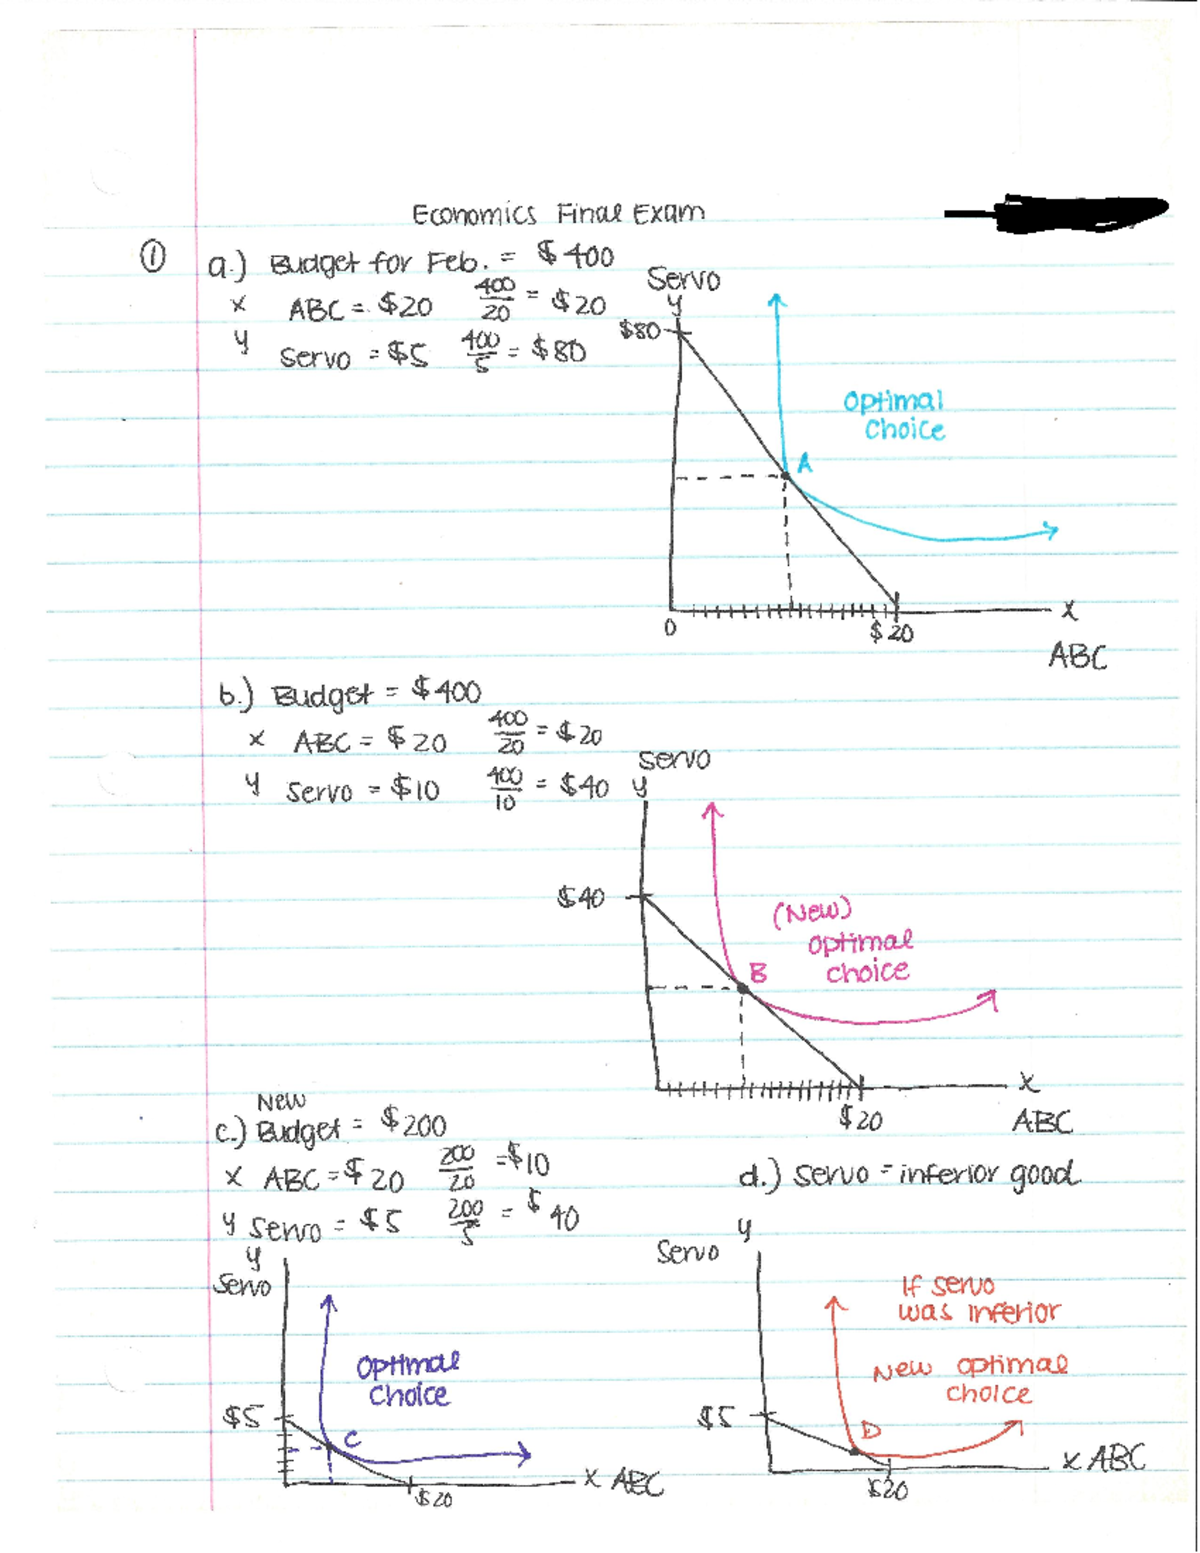 Economics Final Exam
① a.) Budget for Feb. = $400
x ABC = $20 400/20 = $20
y Servo = $5 400/5 = $80
Servo
y
$80
Optimal
choice
A
0
$20
x
ABC
b.) Budget = $400
x ABC = $20 400/20 = $20
y Servo = $10 400/10 = $40
Servo
y
$40
(New)
optimal
choice
B
$20
x
ABC
New
c.) Budget = $200
x ABC = $20 200/20 = $10
y Servo = $5 200/5 = $40
y
Servo
Optimal
Choice
$5
C
$20
x ABC
d.) Servo = inferior good
y
Servo
If servo
was inferior
New optimal
choice
$5
D
$20
x ABC